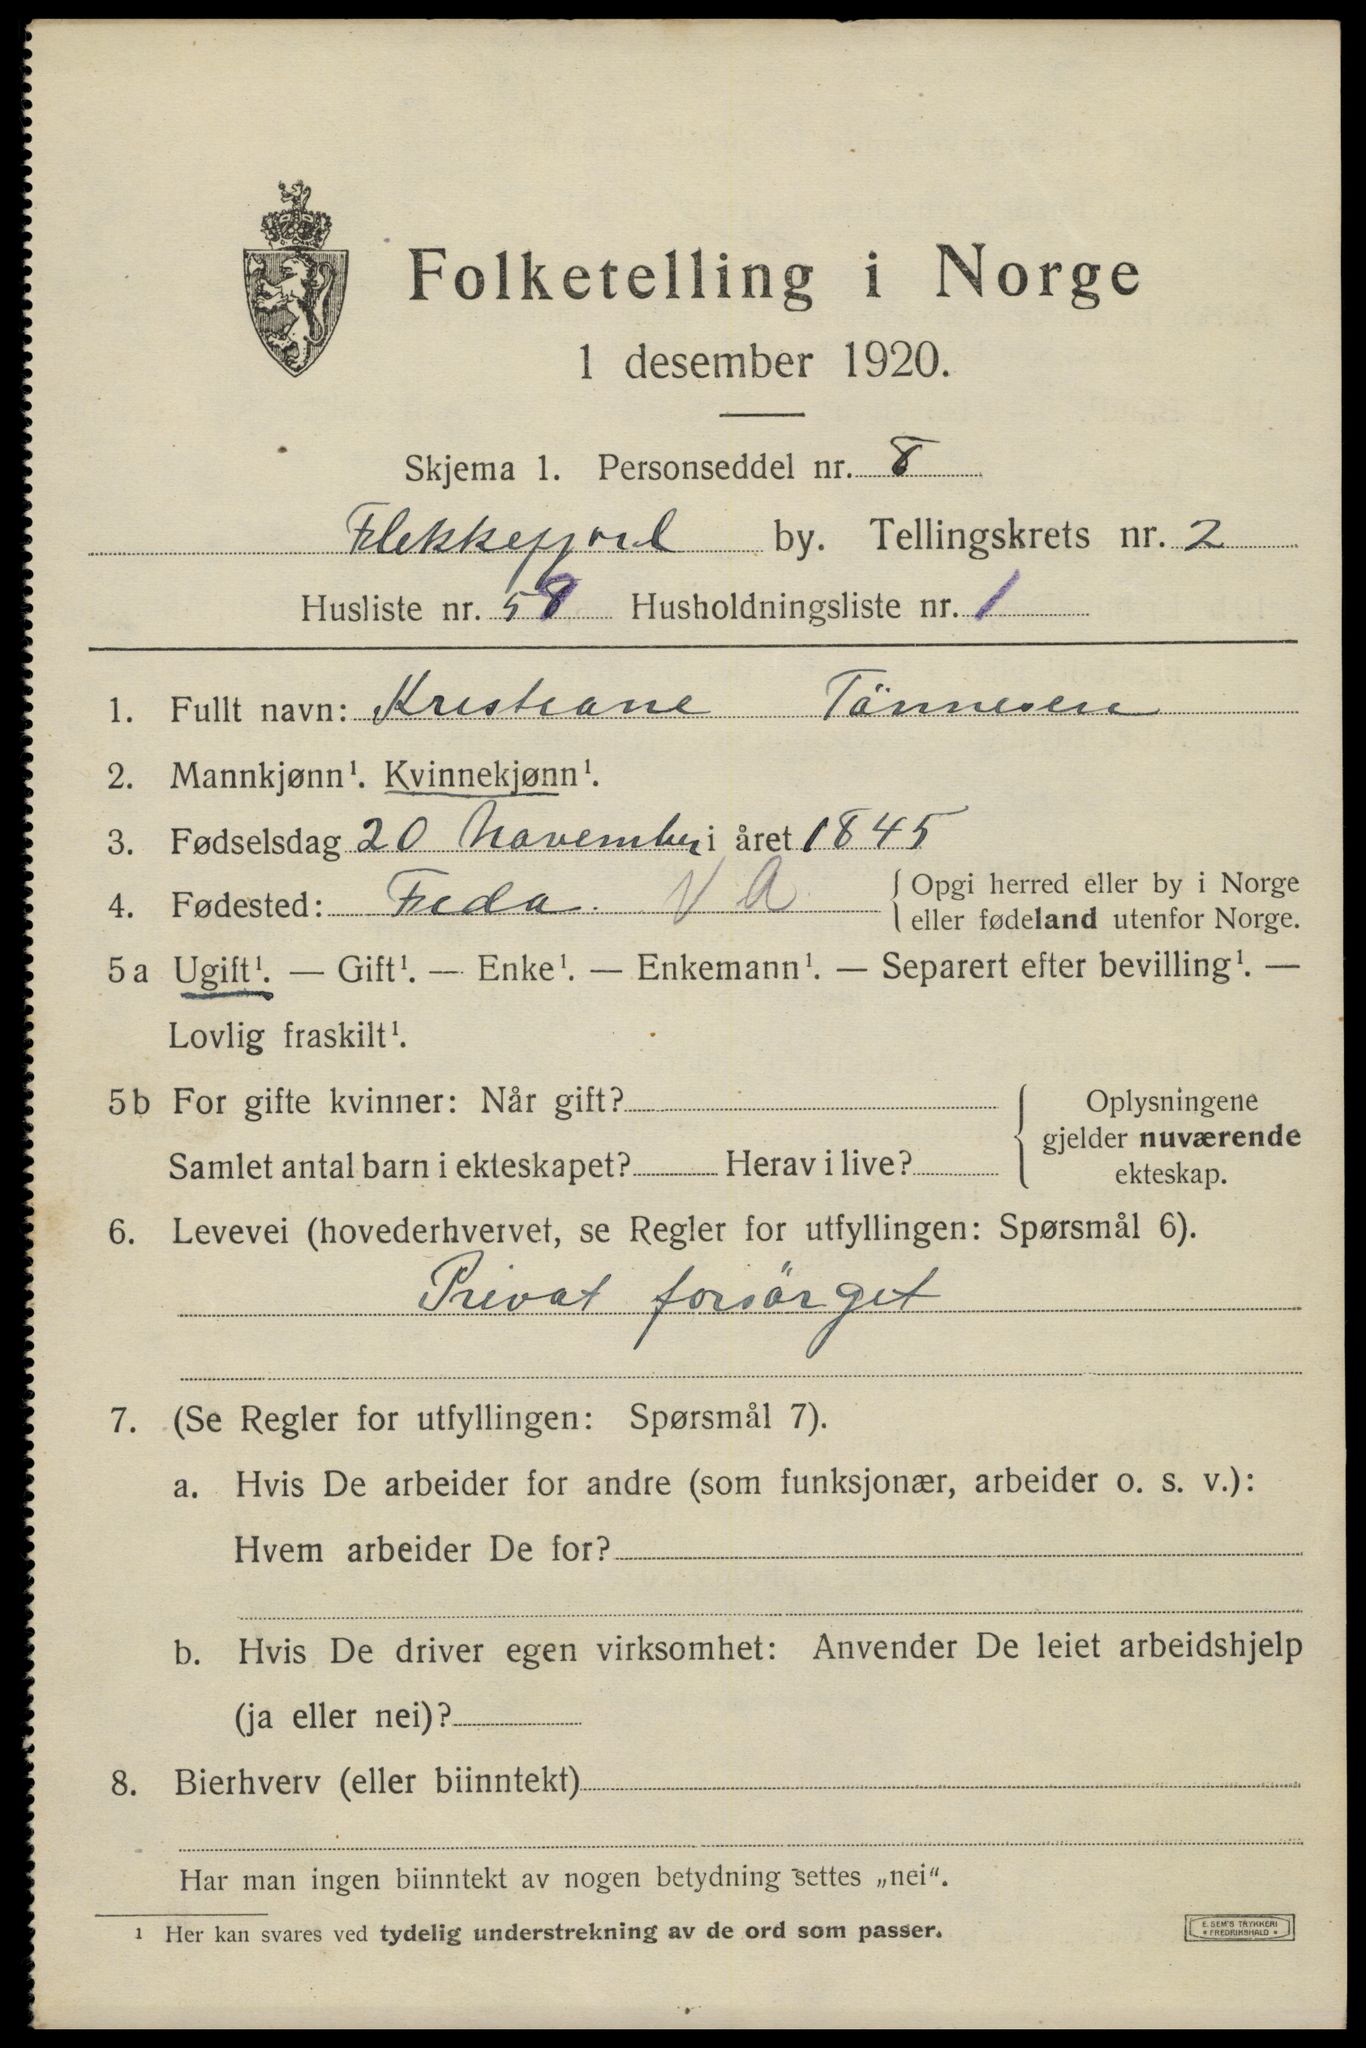 Folketelling i Norge
1 desember 1920.
Skjema 1. Personseddel nr. 8
Flekkefjord by. Tellingskrets nr. 2
Husliste nr. 58 Husholdningsliste nr. 1
1. Fullt navn: Kristiane Tönnesen
2. Mannkjønn¹. Kvinnekjønn¹.
3. Fødselsdag 20 November i året 1845
4. Fødested: Feda V A { Opgi herred eller by i Norge
eller fødeland utenfor Norge.
5a Ugift¹. — Gift¹. — Enke¹. — Enkemann¹. — Separert efter bevilling¹. —
Lovlig fraskilt¹.
5b For gifte kvinner: Når gift? { Oplysningene
gjelder nuværende
Samlet antal barn i ekteskapet? Herav i live? ekteskap.
6. Levevei (hovederhvervet, se Regler for utfyllingen: Spørsmål 6).
Privat forsörget
7. (Se Regler for utfyllingen: Spørsmål 7).
a. Hvis De arbeider for andre (som funksjonær, arbeider o. s. v.):
Hvem arbeider De for?
b. Hvis De driver egen virksomhet: Anvender De leiet arbeidshjelp
(ja eller nei)?
8. Bierhverv (eller biinntekt)
Har man ingen biinntekt av nogen betydning settes „nei“.
¹ Her kan svares ved tydelig understrekning av de ord som passer.
E. SEM'S TRYKKERI
* FREDRIKSHALD *